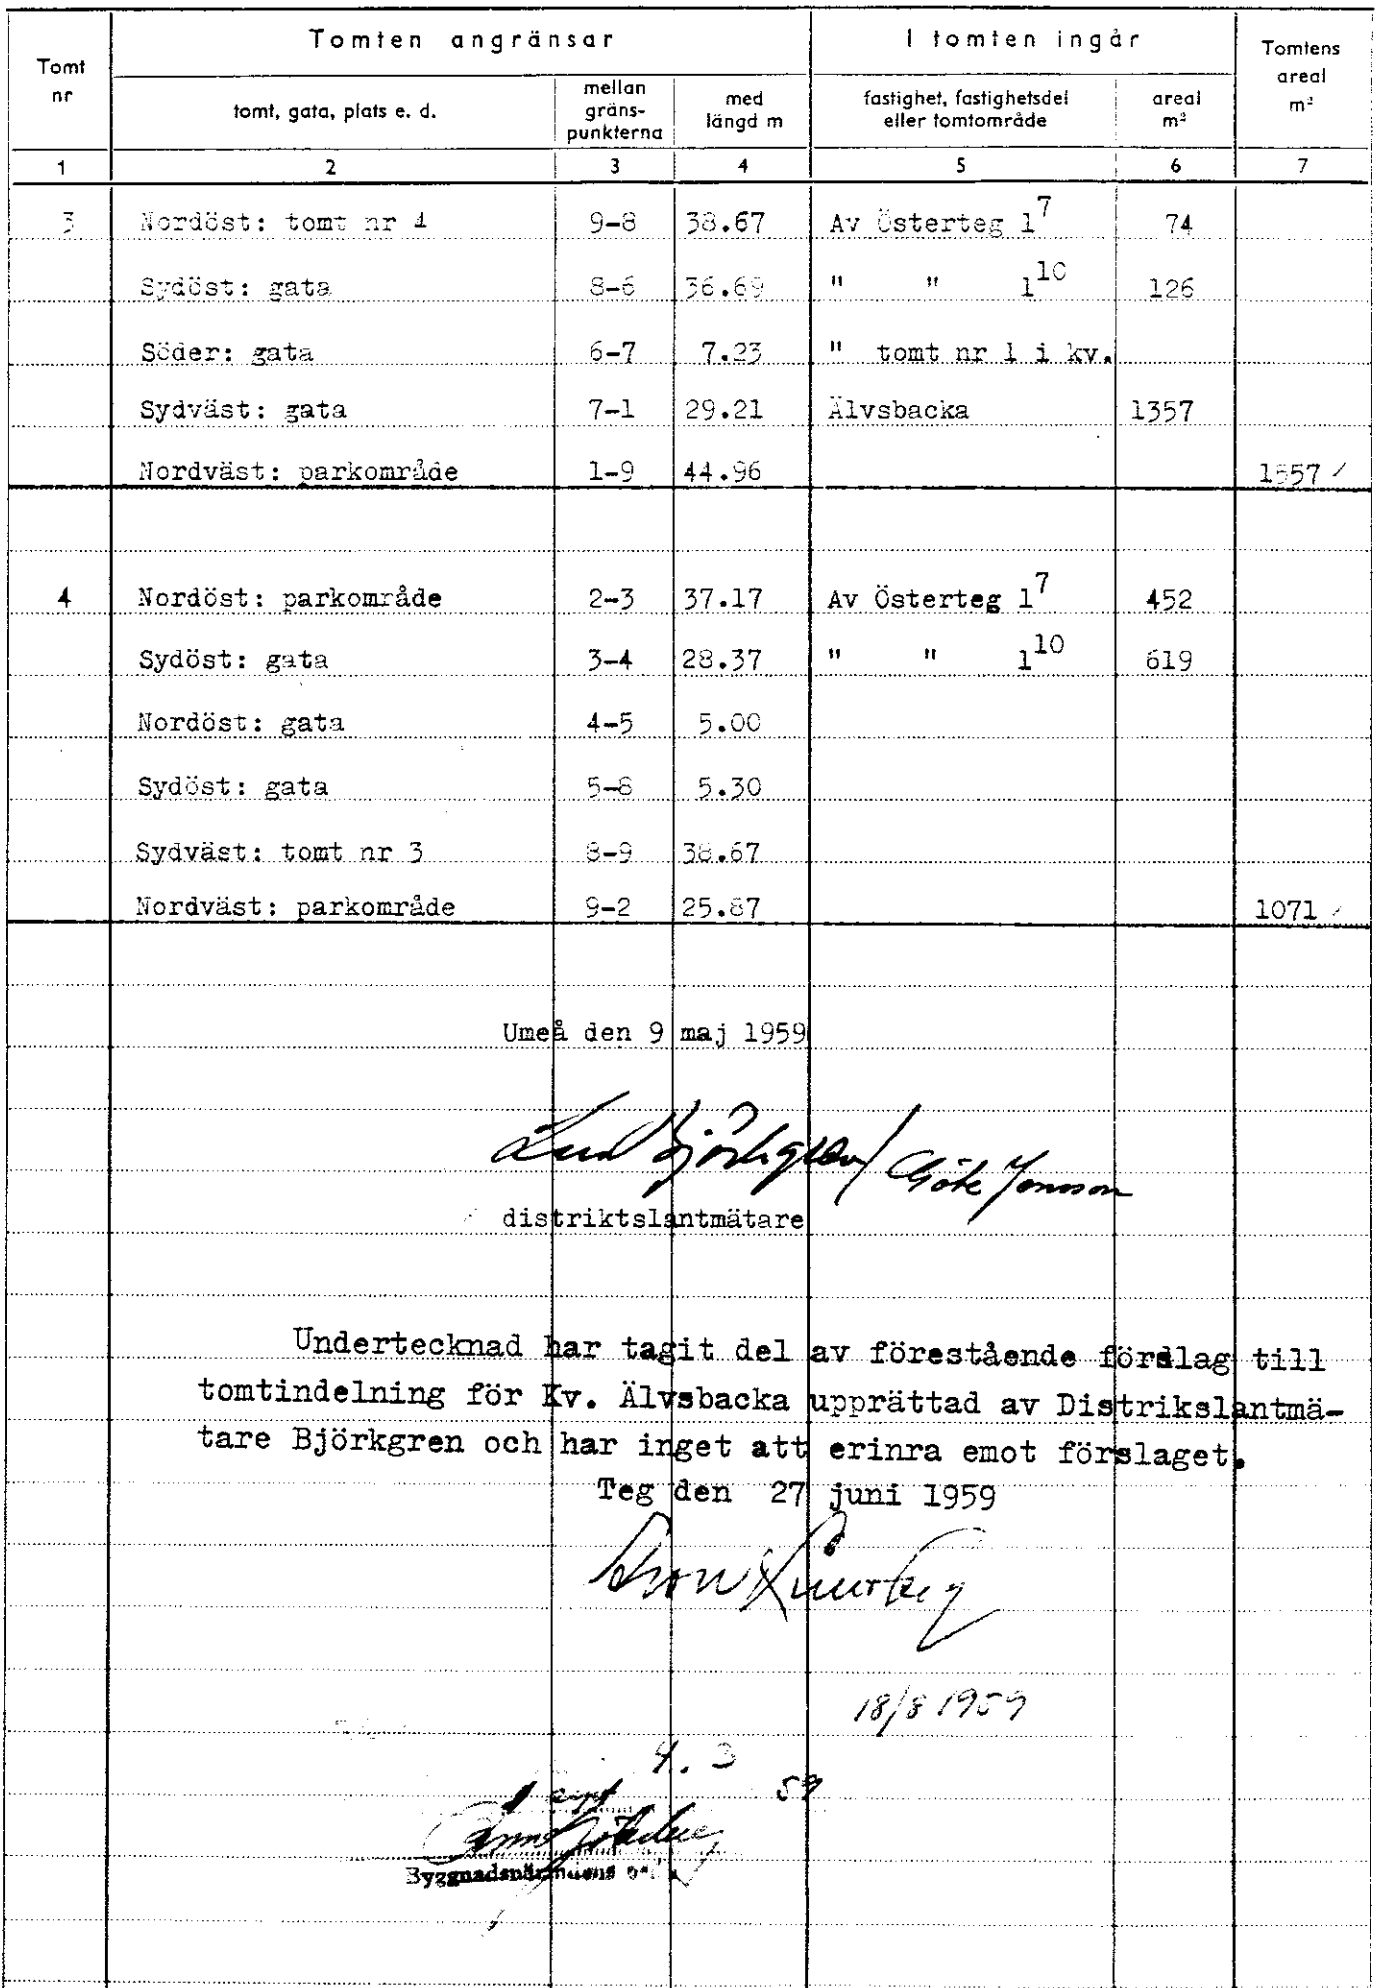 Tomt nr | Tomten angränsar | I tomten ingår | Tomtens areal m²
tomt, gata, plats e. d. | mellan gräns-punkterna | med längd m | fastighet, fastighetsdel eller tomtområde | areal m²
1 | 2 | 3 | 4 | 5 | 6 | 7
3 | Nordöst: tomt nr 4 | 9-8 | 38.67 | Av Österteg 1⁷ | 74
Sydöst: gata | 8-6 | 36.69 | " " 1¹⁰ | 126
Söder: gata | 6-7 | 7.23 | " tomt nr 1 i kv.
Sydväst: gata | 7-1 | 29.21 | Älvsbacka | 1357
Nordväst: parkområde | 1-9 | 44.96 | 1557
4 | Nordöst: parkområde | 2-3 | 37.17 | Av Österteg 1⁷ | 452
Sydöst: gata | 3-4 | 28.37 | " " 1¹⁰ | 619
Nordöst: gata | 4-5 | 5.00
Sydöst: gata | 5-8 | 5.30
Sydväst: tomt nr 3 | 8-9 | 38.67
Nordväst: parkområde | 9-2 | 25.87 | 1071
Umeå den 9 maj 1959
Björkgren / Göte Jonsson
distriktslantmätare
Undertecknad har tagit del av förestående förslag till
tomtindelning för Kv. Älvsbacka upprättad av Distrikslantmä-
tare Björkgren och har inget att erinra emot förslaget.
Teg den 27 juni 1959
18/8 1959
59
Byggnadsnämndens